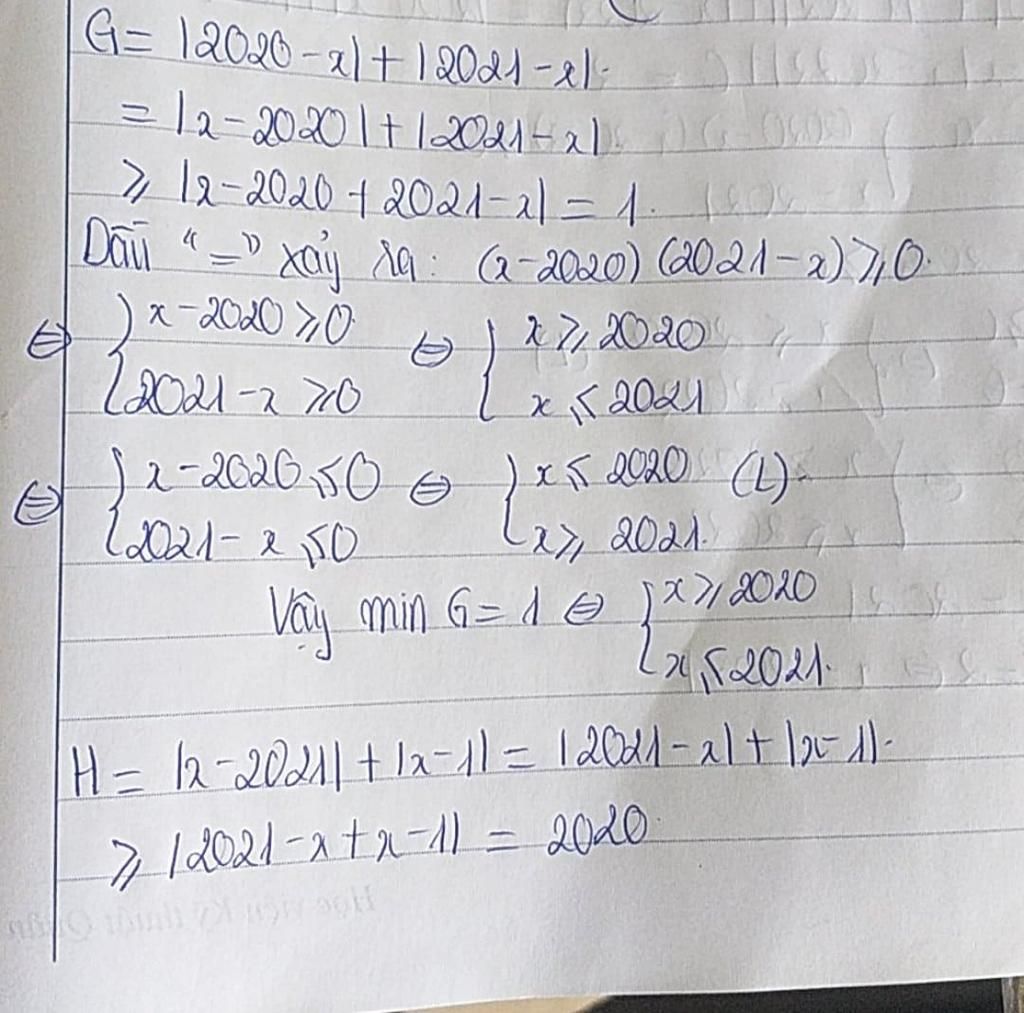 G = |2020 - x| + |2021 - x|.
= |x - 2020| + |2021 - x|
⩾ |x - 2020 + 2021 - x| = 1.
Dấu "=" xảy ra: (x - 2020) (2021 - x) ⩾ 0.
⇔ { x - 2020 ⩾ 0 ⇔ { x ⩾ 2020
2021 - x ⩾ 0 x ⩽ 2021
⇔ { x - 2020 ⩽ 0 ⇔ { x ⩽ 2020 (L).
2021 - x ⩽ 0 x ⩾ 2021.
Vậy min G = 1 ⇔ { x ⩾ 2020
x ⩽ 2021.
H = |x - 2021| + |x - 1| = |2021 - x| + |x - 1|.
⩾ |2021 - x + x - 1| = 2020.
Học viện Kỹ thuật Quân